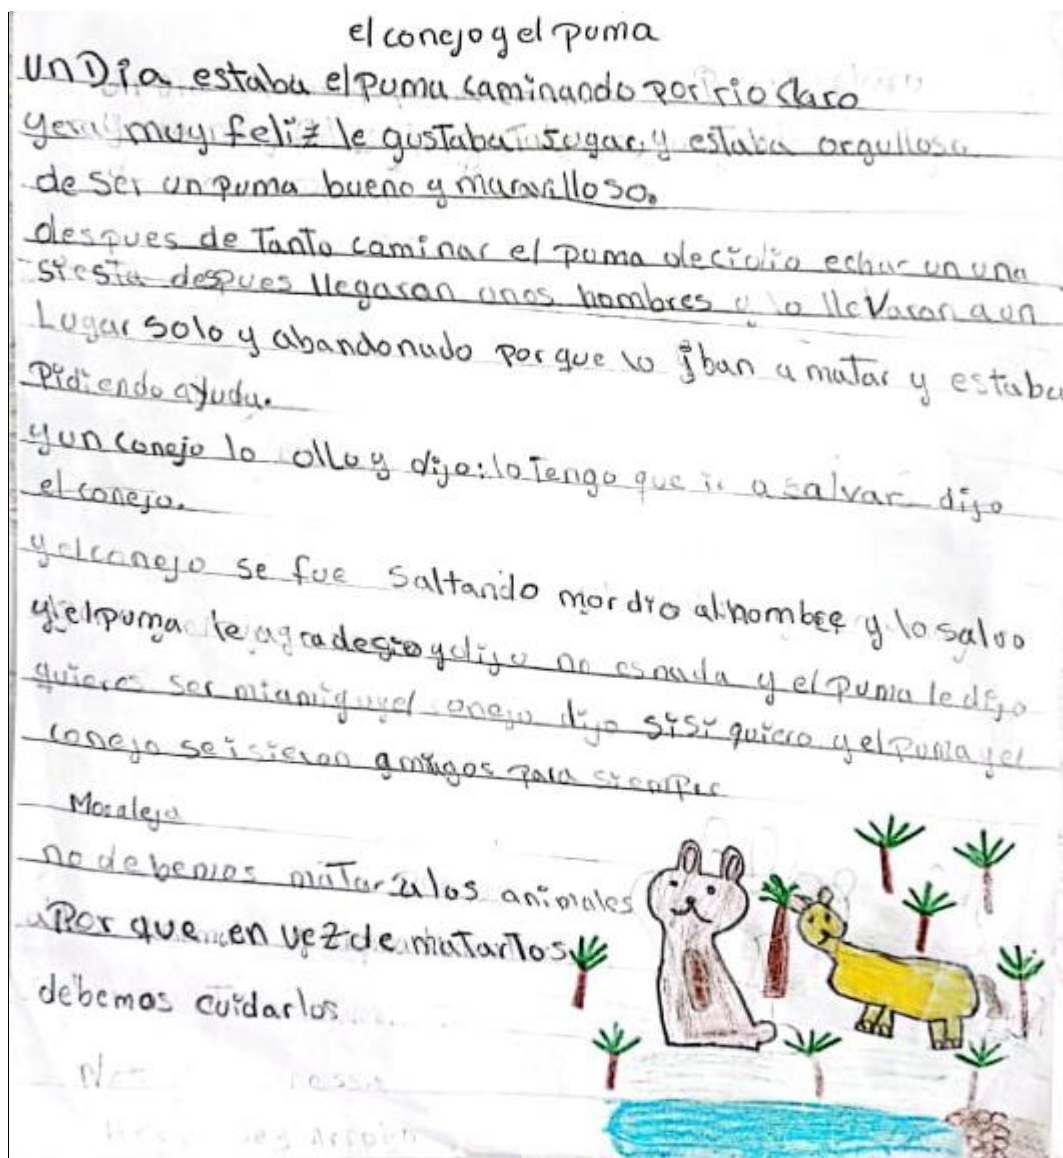 el conejo y el puma
un Dia estaba el puma caminando por rio claro
y era muy feliz le gustaba Jugar y estaba orgulloso
de ser un puma bueno y maravilloso.
despues de Tanto caminar el puma decidio echar un una
siesta despues llegaron unos hombres y lo llevaron a un
Lugar solo y abandonado por que lo iban a matar y estaba
Pidiendo ayuda.
y un conejo lo ollo y dijo: lo Tengo que ir a salvar dijo
el conejo.
y el conejo se fue saltando mordio al hombre y lo salvo
y el puma le agradesio y dijo no es nada y el puma le dijo
quieres ser mi amigo y el conejo dijo si si quiero y el puma y el
conejo se isieron amigos para siempre
Moraleja
no debemos matar a los animales
Por que en vez de matarlos
debemos cuidarlos